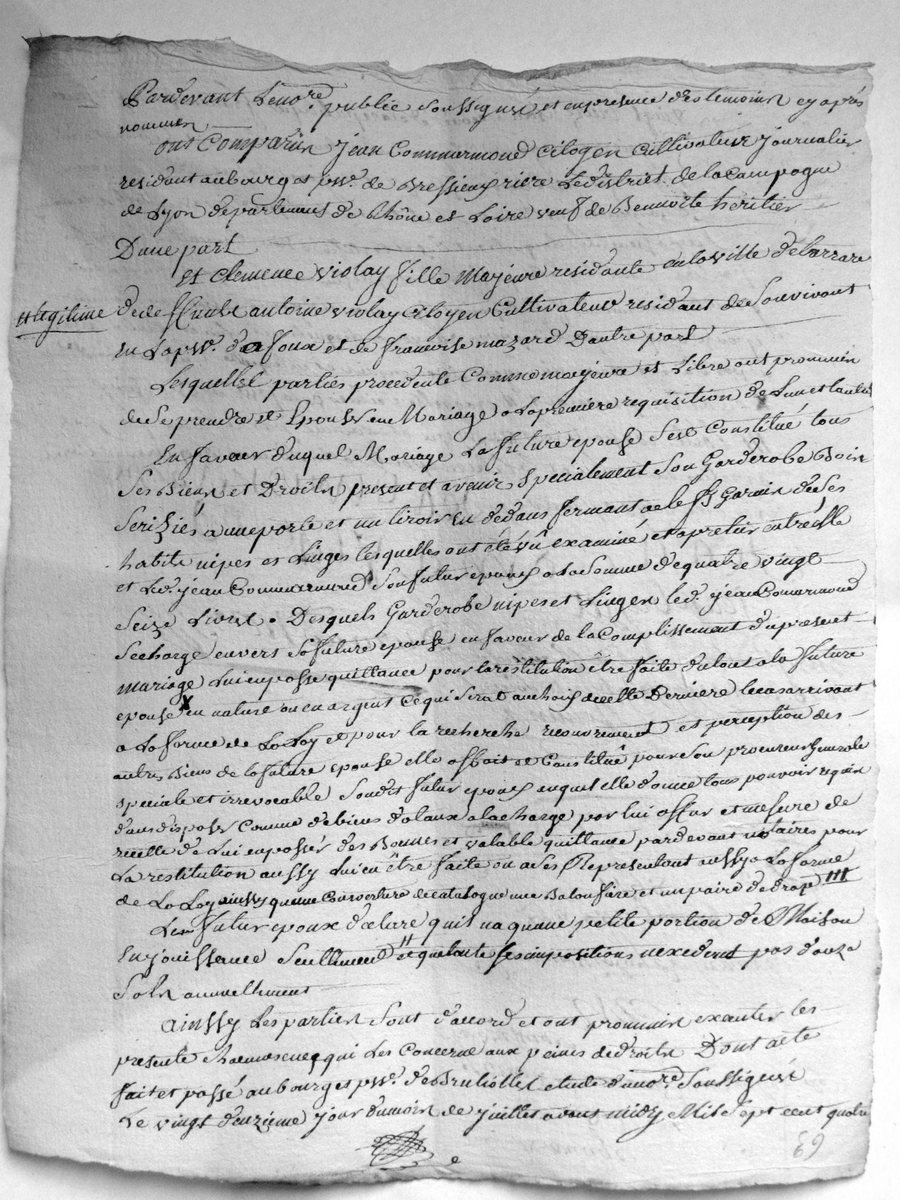 Pardevant Lenore. publiée Soussigné et en presence des temoins cy après
nommen
ont Comparün jean Commarmond Citoyen Cultivateur journalier
residant aubourg et psse. de Bressieux riere Ledistrict delaCampagne
de Lyon departement de Rhône et Loire veuf de Benoite heritier
Dune part
et Clemence violay fille Majeure residante en la ville de larrare
et legitime
de de antoine violay Citoyen Cultivateur residant de Souvivant
en La psse. d'affoux et de francoise mazard Dautre part
Lesquelles parties procedente Comme majeure et Libre ont prommin
de Se prendre et Epouser en Mariage a La premiere requisition de Lun et lautre
En faveur duquel Mariage La future epouse Sest Constitué tous
Ses Biens et Droitn present et avenir Specialement Son Garderobe Bois
Serizié a une porte et un tiroir en dedans fermant a clef Garnin de Ses
habits nipes et Linges lesquelles ont été vû examiné et apretie entre elle
et Led. jean Commarmond Son futur epoux a La Somme de quatre vingt
Seize Livres. Desquels Garderobe nipes et Lingen led. jean Commarmond
Se charge envers Sa future epouse en faveur de la Complissement du present
mariage Lui en passe quittance pour la restitution être faite du tout a la future
epouse en nature ou en argent Ce qui Serat au choix de celle Derniere le cas arrivant
a La forme de La Loy et pour la recherche recouvrement et perception des
autres Biens de la future epouse elle a fait et Constitué pour Son procureur General
speciale et irrevocable Son dit futur epoux auquel elle donne tous pouvoir requin
dans disposer Comme de biens dotaux a la charge par lui a fur et mesure de
recette de Lui en passer des Bonnes et valable quittance pardevant notaires pour
La restitution aussy Lui en être faite ou a Ses Representant aussy a La forme
de La Loy ainssy que une Couverture de catalogne une Balonfière et un paire de drap
Le futur epoux déclare quil na quune petite portion de Maison
En jouissance Seullement et que toute Ses impositions nexedent pas douze
Soln annuellement
ainssy Les partien Sont d'accord et ont prommin executer les
presente Chacun en ce qui Les Concerne aux peines de droitn Dont acte
fait et passé au bourg et psse. de Brullioles etude du nore. Soussigné
Le vingt deuzieme jour du moin de juillet avant midy Mil Sept cent quatre
69